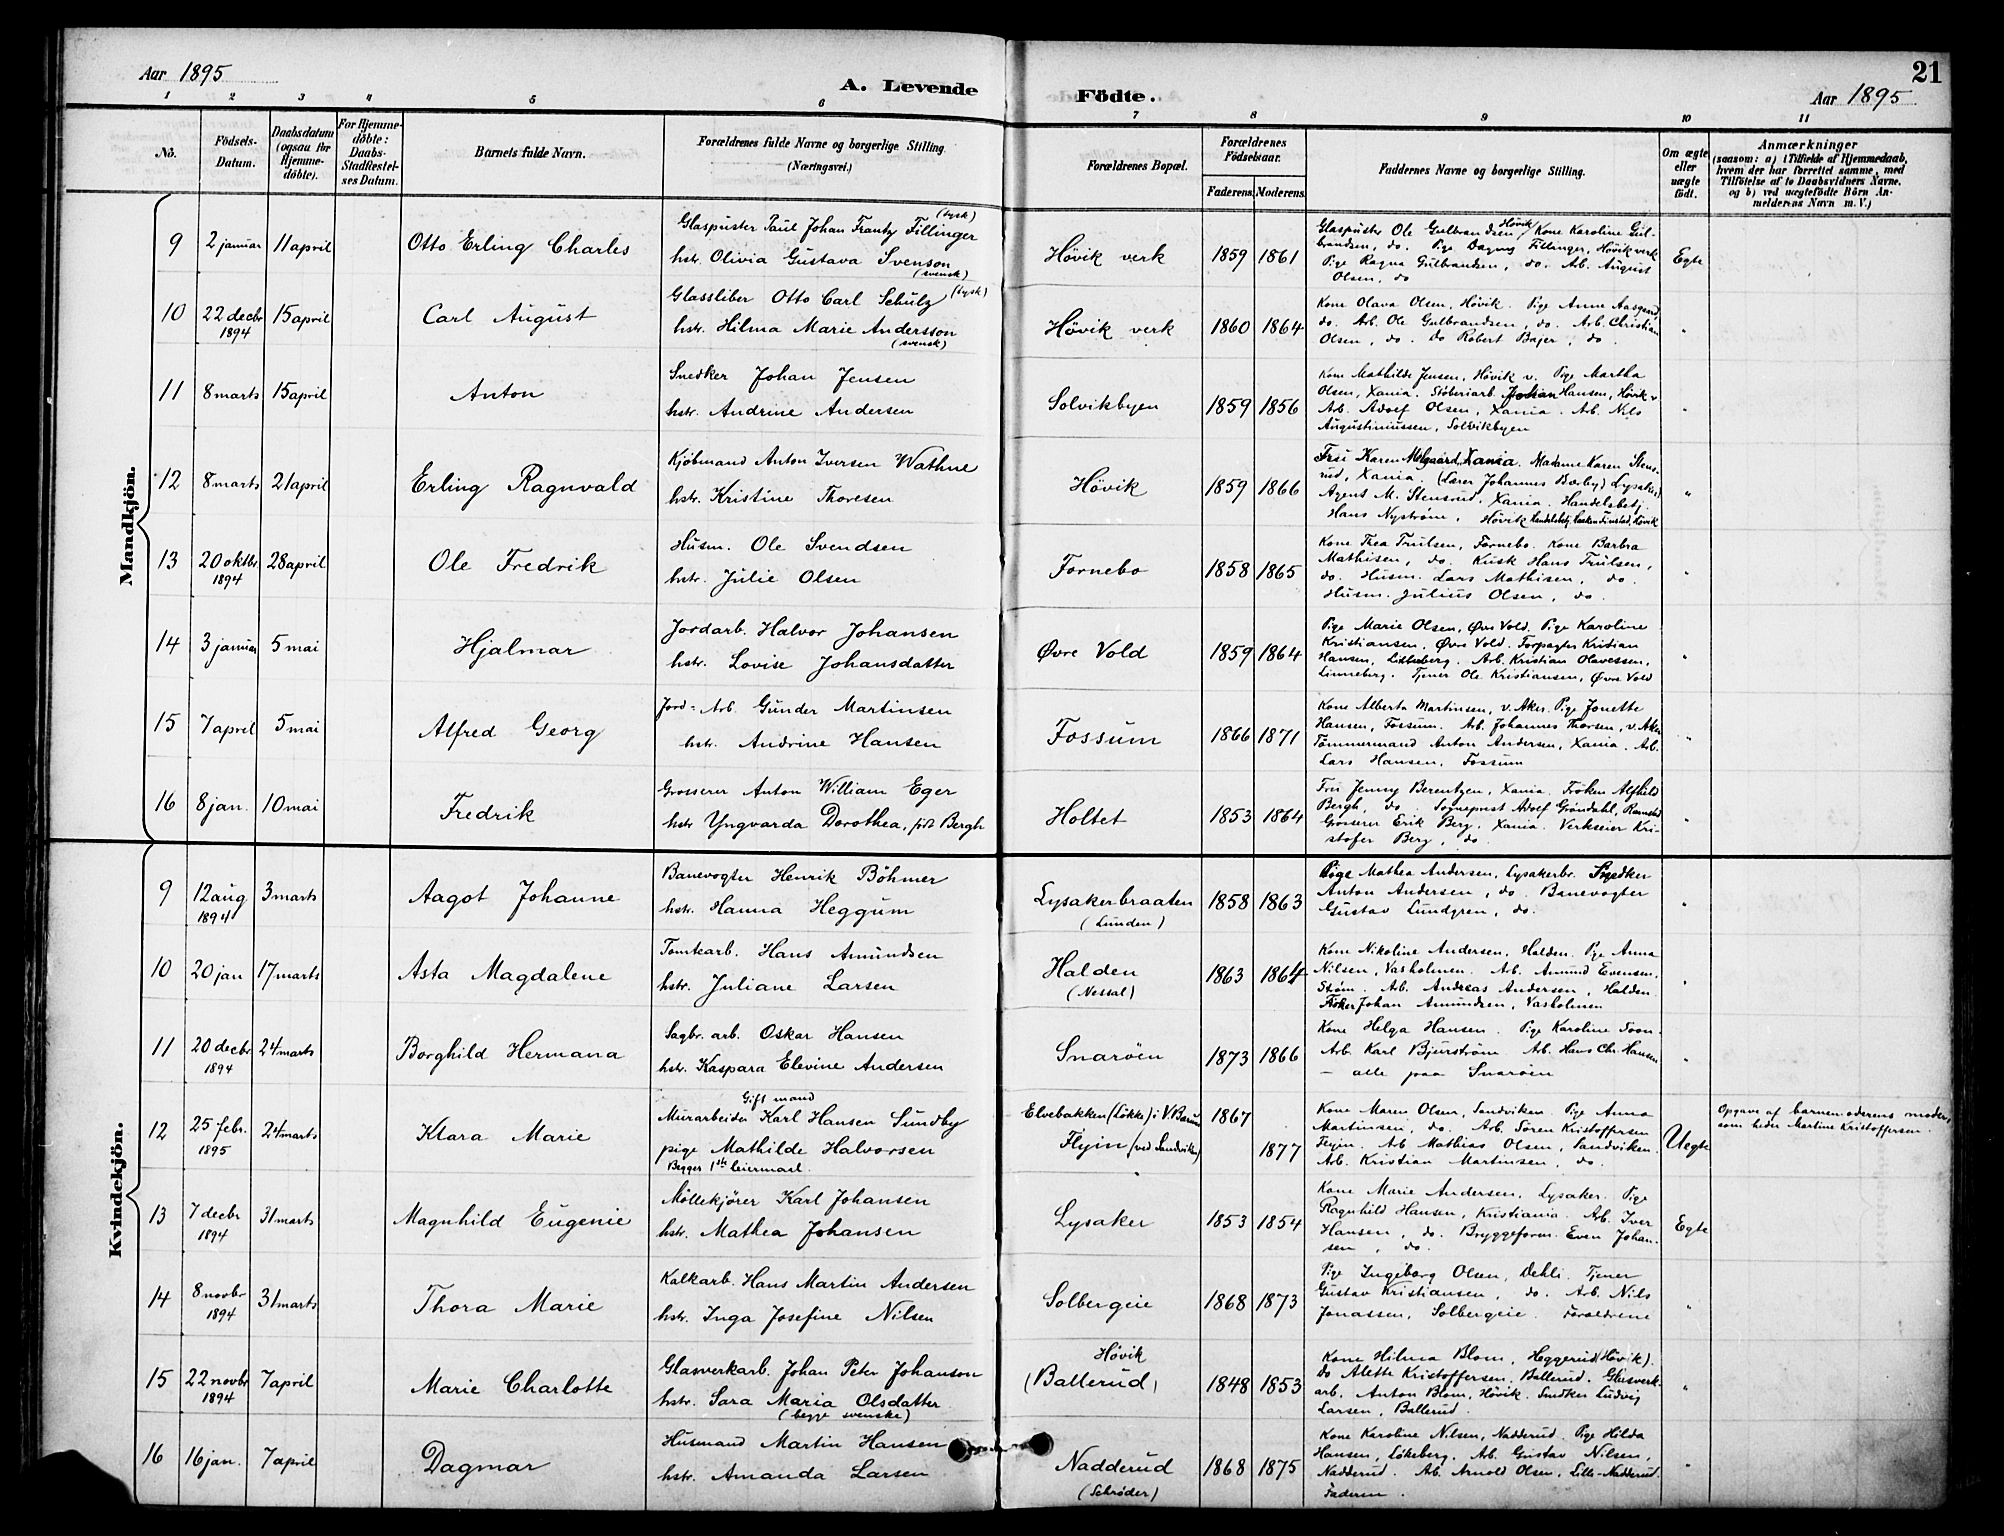 Aar 1895
A. Levende Födte.
Aar 1895
21
1 2 3 4 5 6 7 8 9 10 11
No.
Födsels-Datum.
Daabsdatum (ogsaa for Hjemmedöbte).
For Hjemmedöbte: Daabs-Stadfæstelses Datum.
Barnets fulde Navn.
Forældrenes fulde Navne og borgerlige Stilling. (Næringsvei.)
Forældrenes Bopæl.
Forældrenes Födselsaar.
Faderens. Moderens.
Faddernes Navne og borgerlige Stilling.
Om ægte eller uægte födt.
Anmærkninger
(saasom: a) i Tilfælde af Hjemmedaab,
hvem der har forrettet samme, med
Tilföielse af to Daabsvidners Navne,
og b) ved uægtefödte Börn An-
melderens Navn m. V.)
Mandkjön.
9 2 januar 11 april Otto Erling Charles
Glaspuster Paul Johan Frantz Fillinger (tysk)
hstr. Olivia Gustava Svenson (svensk)
Høvik verk 1859 1861
Glaspuster Ole Gulbrandsen, Høvik, Kone Karoline Gul-
brandsen, do. Pige Dagny Fillinger, Høvik verk
Pige Ragna Gulbrandsen, do. Arb. August
Olsen, do
Egte
10 22 decbr 1894 15 april Carl August
Glassliber Otto Carl Schulz (tysk)
hstr. Hilma Marie Andersson (svensk)
Høvik verk 1860 1864
Kone Olava Olsen, Høvik. Pige Anna Aasgaard,
do. Arb. Ole Gulbrandsen, do. Arb. Christian
Olsen, do. Do Robert Bajer, do.
"
11 8 marts 15 april Anton
Snedker Johan Jensen
hstr. Andrine Andersen
Solvikbyen 1859 1856
Kone Mathilde Jensen, Høvik v. Pige Martha
Olsen, Xania. Støberiarb. Johan Hansen, Høvik v
Arb. Adolf Olsen, Xania. Arb. Nils
Augustiniussen, Solvikbyen
"
12 8 marts 21 april Erling Ragnvald
Kjøbmand Anton Iversen Wathne
hstr. Kristine Thoresen
Høvik 1859 1866
Fru Karen Melgaard, Xania. Madame Karen Stens-
rud, Xania. (Lærer Johannes Bærby) Lysaker)
Agent M. Stensrud, Xania. Handelsbetj.
Hans Nystrøm, Høvik Handelsbetj. Haaken Finstad, Høvik
"
13 20 oktbr 1894 28 april Ole Fredrik
Husm. Ole Svendsen
hstr. Julie Olsen
Fornebo 1858 1865
Kone Thea Trulsen, Fornebo. Kone Barbra
Mathisen, do. Kusk Hans Trulsen,
do. Husm. Lars Mathisen, do.
Husm. Julius Olsen, do.
"
14 3 januar 5 mai Hjalmar
Jordarb. Halvor Johansen
hstr. Lovise Johansdatter
Øvre Vold 1859 1864
Pige Marie Olsen, Øvre Vold. Pige Karoline
Kristiansen, Øvre Vold. Forpagter Kristian
Hansen, Arb. Kristian Olavessen,
Linneberg. Tjener Ole Kristiansen, Øvre Vold
"
15 7 april 5 mai Alfred Georg
Jord-Arb. Gunder Martinsen
hstr. Andrine Hansen
Fossum 1866 1871
Kone Alberta Martinsen, v. Aker. Pige Jonette
Hansen, Fossum. Arb. Johannes Thorsen, v. Aker
Tømmermand Anton Andersen, Xania. Arb.
Lars Hansen, Fossum
"
16 8 jan. 10 mai Fredrik
Grosserer Anton William Eger
hstr Yngvarda Dorothea, født Bergh
Holtet 1853 1864
Fru Jenny Berentzen, Xania. Frøken Alfhild
Bergh, do. Sogneprest Adolf Grøndahl, Ramstad
Grosserer Erik Berg, Xania. Verkseier Kri-
stofer Berg, do.
"
Kvindekjön.
9 12 aug 1894 3 marts Aagot Johanne
Banevogter Henrik Böhmer
hstr. Hanna Heggum
Lysakerbraaten (Lunden) 1858 1863
Pige Mathea Andersen, Lysakerbr. Snedker
Anton Andersen, do. Banevogter
Gustav Lundgren, do.
"
10 20 jan 17 marts Asta Magdalene
Tomtearb. Hans Amundsen
hstr. Juliane Larsen
Halden (Nessal) 1863 1864
Kone Nikoline Andersen, Halden. Pige Anna
Nilsen, Vasholmen. Arb. Amund Evensen,
Strøm. Arb. Andreas Andersen, Halden.
Fisker Johan Amundsen, Vasholmen
"
11 20 decbr 1894 24 marts Borghild Hermana
Sagbr. arb. Oskar Hansen
hstr. Kaspara Elevine Andersen
Snarøen 1873 1866
Kone Helga Hansen. Pige Karoline Soon.
Arb. Karl Bjurstrøm Arb. Hans Chr. Hansen
– alle paa Snarøen
"
12 25 febr. 1895 24 marts Klara Marie
Gift mand
Murarbeider Karl Hansen Sundby
pige Mathilde Halvorsen
Begges 1ste leiermaal
Elvebakken (Løkke) i V. Bærum 1867
Flyin (ved Sandviken) 1877
Kone Maren Olsen, Sandviken. Pige Anna
Martinsen, do. Arb. Søren Kristoffersen
Flyin. Arb Mathias Olsen, Sandviken.
Arb. Kristian Martinsen, do.
Uegte
Opgave af barnemoderens moder,
som heder Martine Kristoffersen.
13 7 decbr 1894 31 marts Magnhild Eugenie
Møllekjører Karl Johansen
hstr. Mathea Johansen
Lysaker 1853 1854
Kone Marie Andersen, Lysaker. Pige
Ragnhild Hansen, Kristiania. Arb. Iver
Hansen, do. Bryggeform. Even Johan-
sen, do.
Egte
14 8 novbr 1894 31 marts Thora Marie
Kalkarb. Hans Martin Andersen
hstr. Inga Josefine Nilsen
Solbergeie 1868 1873
Pige Ingeborg Olsen, Dehli. Tjener
Gustav Kristiansen, do. Arb. Nils
Jonassen, Solbergeie. Forældrene
"
15 22 novbr 1894 7 april Marie Charlotte
Glasverkarb. Johan Peter Johanson
hstr. Sara Maria Olsdatter (begge svenske)
Høvik (Ballerud) 1848 1853
Kone Hilma Blom, Heggerud (Høvik).
Do Alette Kristoffersen, Ballerud. Glasverk-
arb. Anton Blom, Høvik. Snedker Ludvig
Larsen, Ballerud.
"
16 16 jan. 7 april Dagmar
Husmand Martin Hansen
hstr. Amanda Larsen
Nadderud (Schrøder) 1868 1875
Kone Karoline Nilsen, Nadderud. Pige Hilda
Hansen, Løkeberg. Arb. Gustav Nilsen,
Nadderud. Arb. Arnold Olsen, Lille-Nadderud.
Faderen.
"